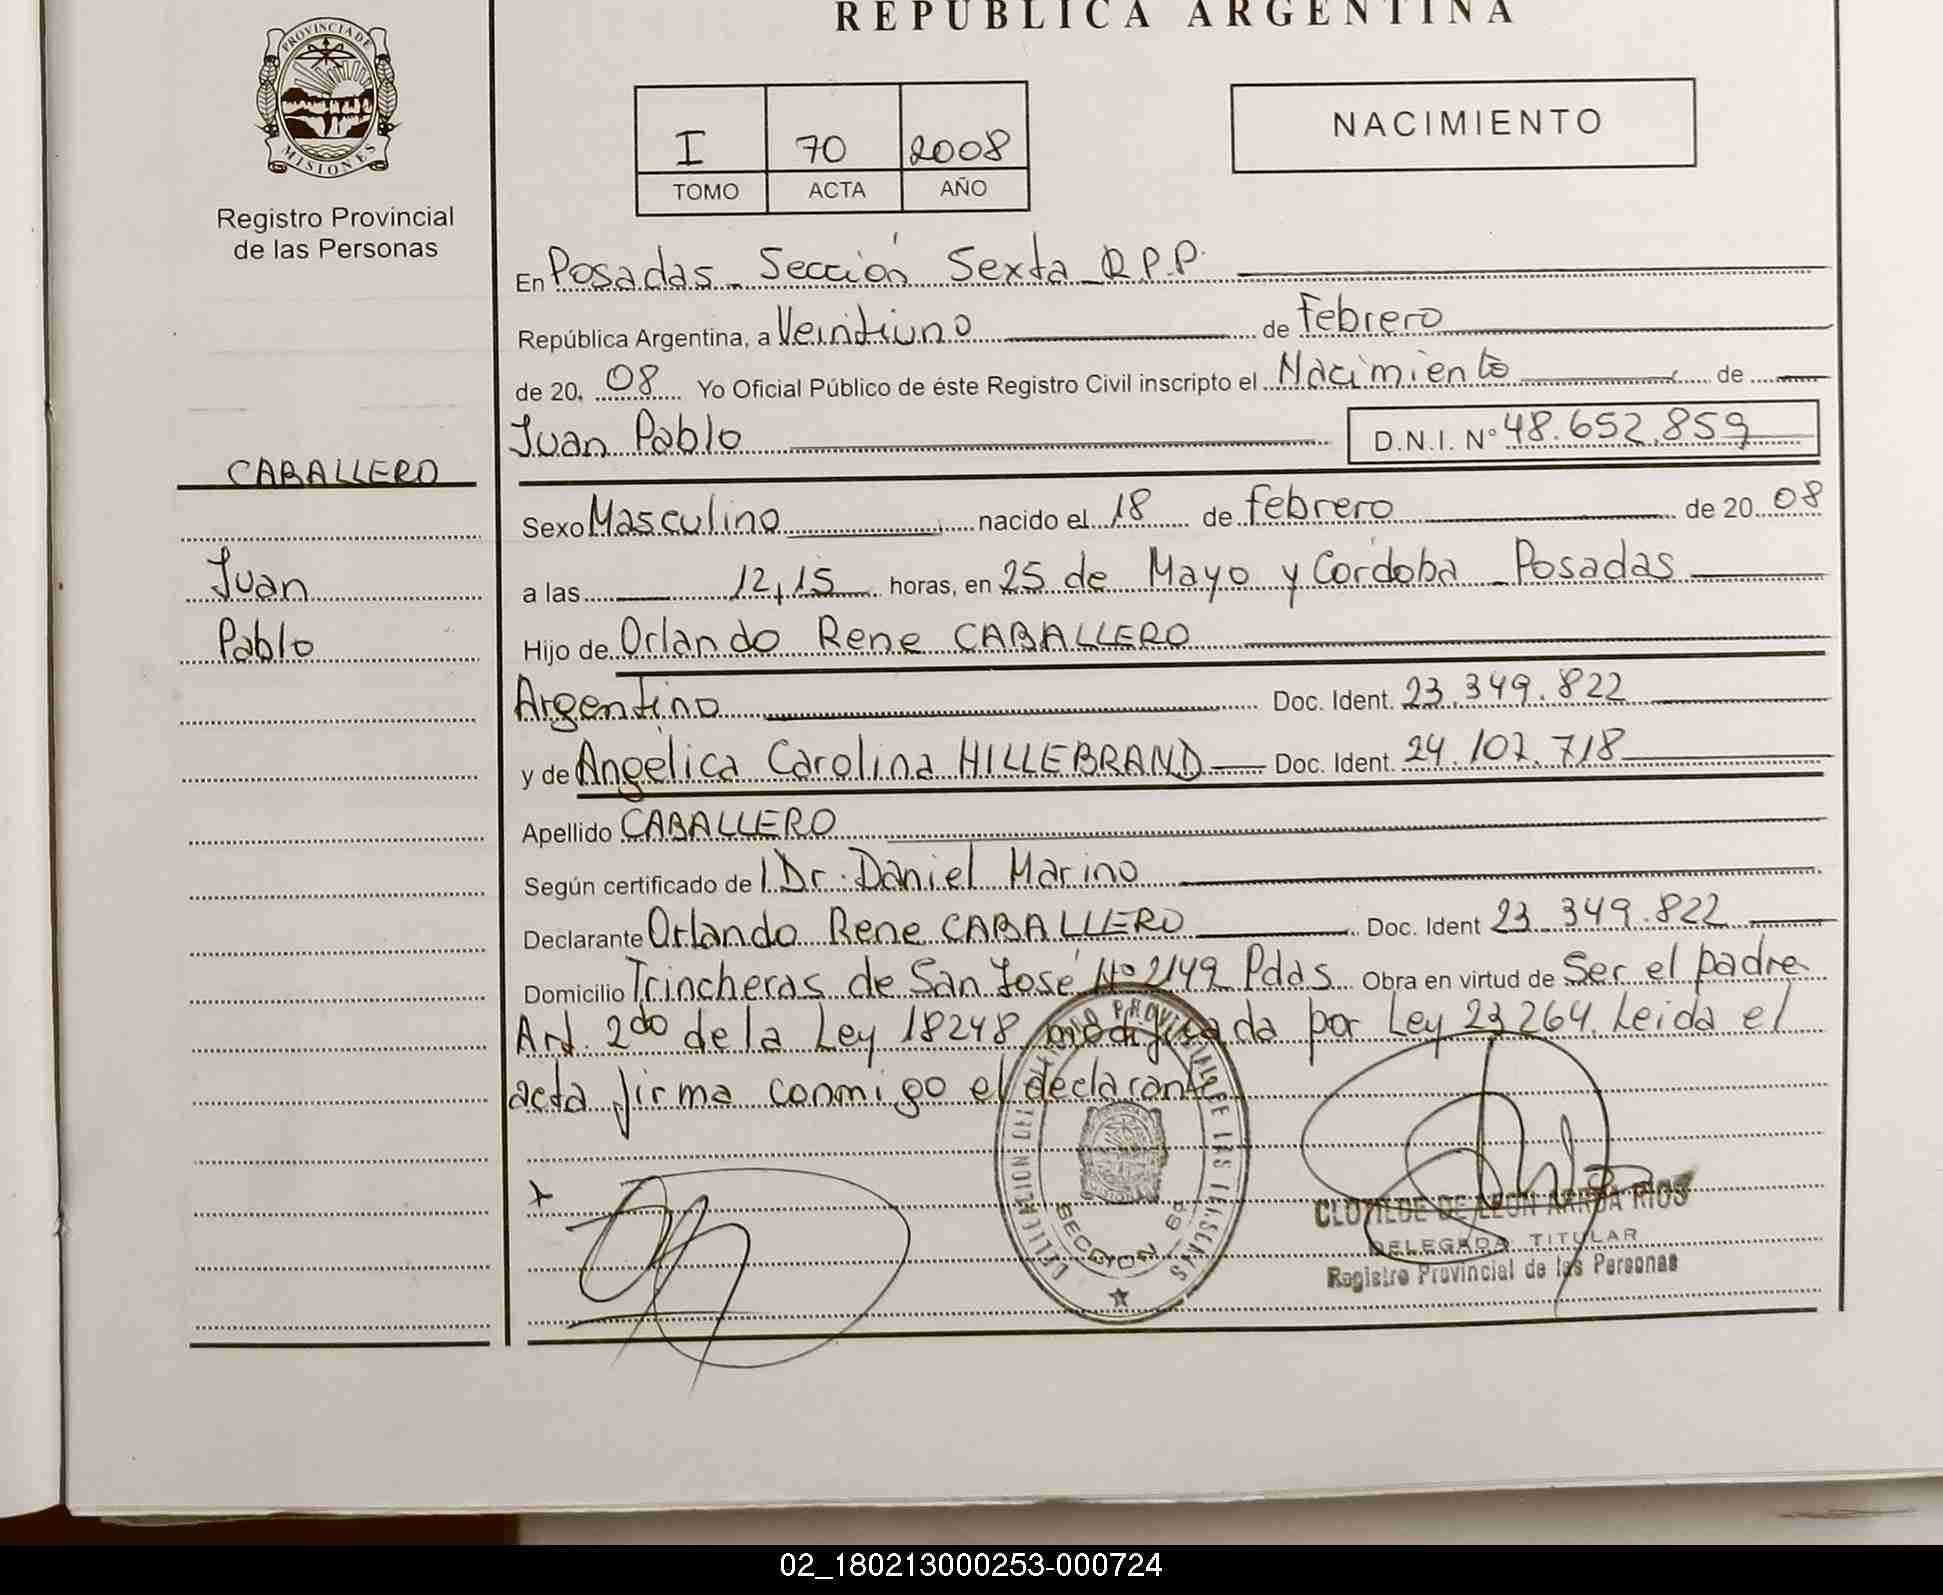 REPÚBLICA ARGENTINA
PROVINCIA DE
MISIONES
Registro Provincial
de las Personas
I 70 2008
TOMO ACTA AÑO
NACIMIENTO
En Posadas - Sección Sexta R.P.P.
República Argentina, a Veintiuno de Febrero
de 20 08 Yo Oficial Público de éste Registro Civil inscripto el Nacimiento de
Juan Pablo D.N.I. N° 48.652.859
CABALLERO
Juan
Pablo
Sexo Masculino nacido el 18 de febrero de 20 08
a las 12,15 horas, en 25 de Mayo y Córdoba - Posadas
Hijo de Orlando Rene CABALLERO
Argentino Doc. Ident. 23.349.822
y de Angélica Carolina HILLEBRAND Doc. Ident. 24.102.718
Apellido CABALLERO
Según certificado de Dr. Daniel Marino
Declarante Orlando Rene CABALLERO Doc. Ident 23.349.822
Domicilio Trincheras de San José N° 2149 Pdas. Obra en virtud de Ser el padre
Art. 2do de la Ley 18248 modificada por Ley 23264. Leida el
acta firma conmigo el declarante
SECCION 6ª
CLOTILDE DE LEON ARRUA RIOS
DELEGADA TITULAR
Registro Provincial de las Personas
02_180213000253-000724